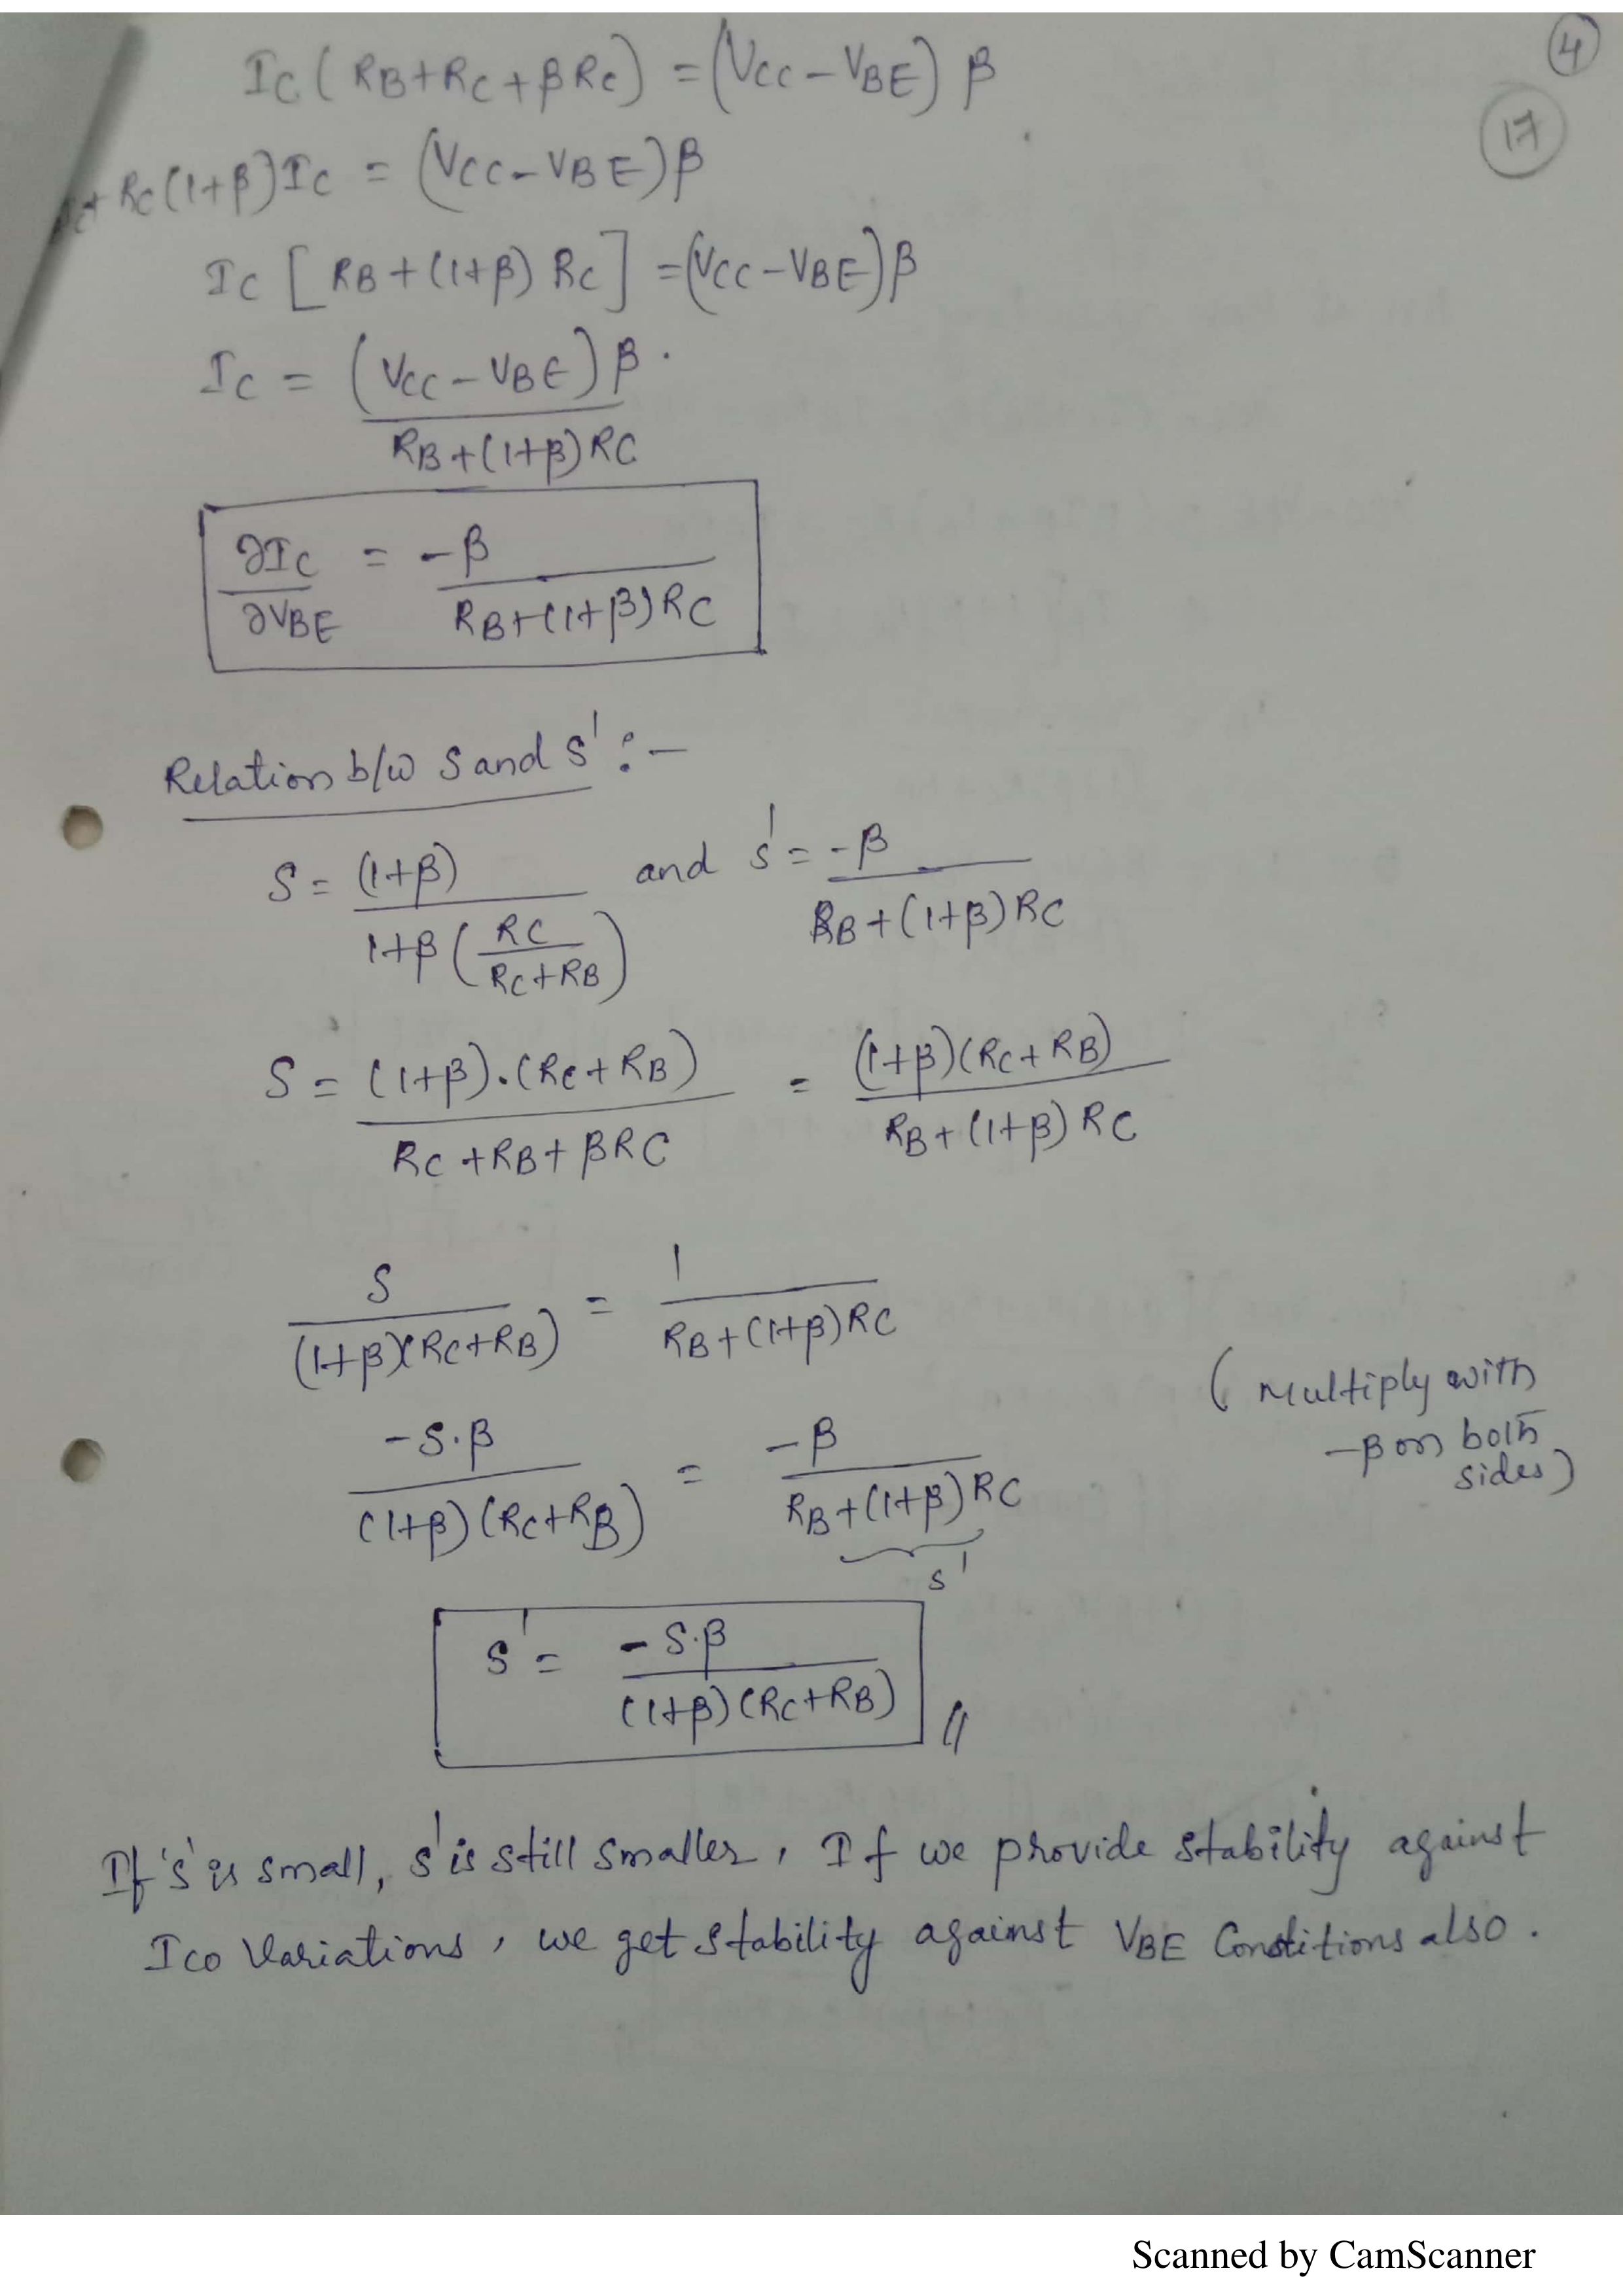 4
I_C ( R_B + R_C + β R_C ) = (V_CC - V_BE) β
17
+ R_C (1+β) I_C = (V_CC - V_BE) β
I_C [ R_B + (1+β) R_C ] = (V_CC - V_BE) β
I_C = (V_CC - V_BE) β .
R_B + (1+β) R_C
∂I_C / ∂V_BE = -β / R_B + (1+β) R_C
Relation b/w S and S' :-
S = (1+β) / 1+β ( R_C / R_C + R_B ) and S' = -β / R_B + (1+β) R_C
S = (1+β).(R_C + R_B) / R_C + R_B + βR_C = (1+β)(R_C + R_B) / R_B + (1+β) R_C
S / (1+β)(R_C + R_B) = 1 / R_B + (1+β) R_C
( Multiply with
-β on both
sides)
-S.β / (1+β)(R_C + R_B) = -β / R_B + (1+β) R_C
S'
S' = -S.β / (1+β)(R_C + R_B) //
If 'S' is small, S' is still smaller, If we provide stability against
I_CO Variations, we get stability against V_BE Conditions also.
Scanned by CamScanner